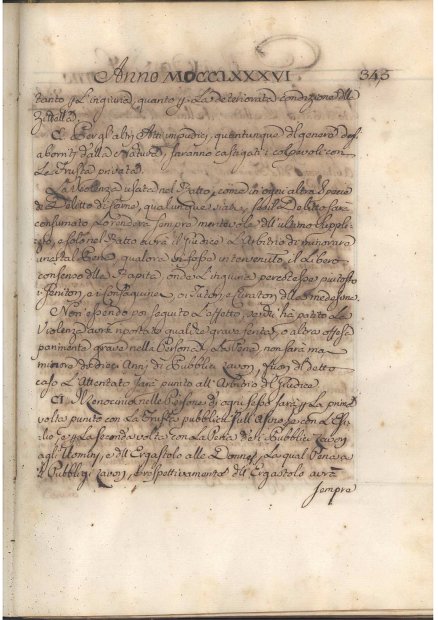 Anno MDCCLXXXVI 343
tanto p. l'ingiuria, quanto p. la deteriorata condizione dlla
Zittella.
C. Per gl'altri Atti impudici, quantunque del genere degl'
aborriti dalla Natura, saranno castigati i colpevoli con
la Frusta privata.
La Violenza usata nel Ratto, come in ogni altra Specie
di Delitto di Carne, qualunque siasi, se il Delitto sarà
consumato lo renderà sempre meritevole dell'ultimo Suppli-
zio, e solo nel Ratto avrà il Giudice l'Arbitrio di minorare
una tal Pena, qualora vi fosse intervenuto il libero
consenso dlla Rapita, onde l'ingiuria percotesse piuttosto
i Genitori, e i Consanguinei, o i Tutori, e Curatori dlla medesima.
Non essendo poi seguito l'effetto, se chi ha patito la
Violenza avrà riportato qualche grave ferita, o altra offesa
parimente grave nella Persona, la Pena non sarà mai
minore di dieci Anni di Pubblici Lavori, e fuori di detto
caso l'Attentato sarà punito all'Arbitrio del Giudice.
CI. Il Lenocinio nelle Persone di ogni sesso sarà p. la prima
volta punito con la Frusta pubblica sull'Asino, e con l'Esi-
lio, e p. la seconda volta con la Pena de' Pubblici Lavori
agli Uomini, e dll'Ergastolo alle Donne, la qual Pena
de' Pubblici Lavori, e respettivamente dll'Ergastolo avrà
sempre